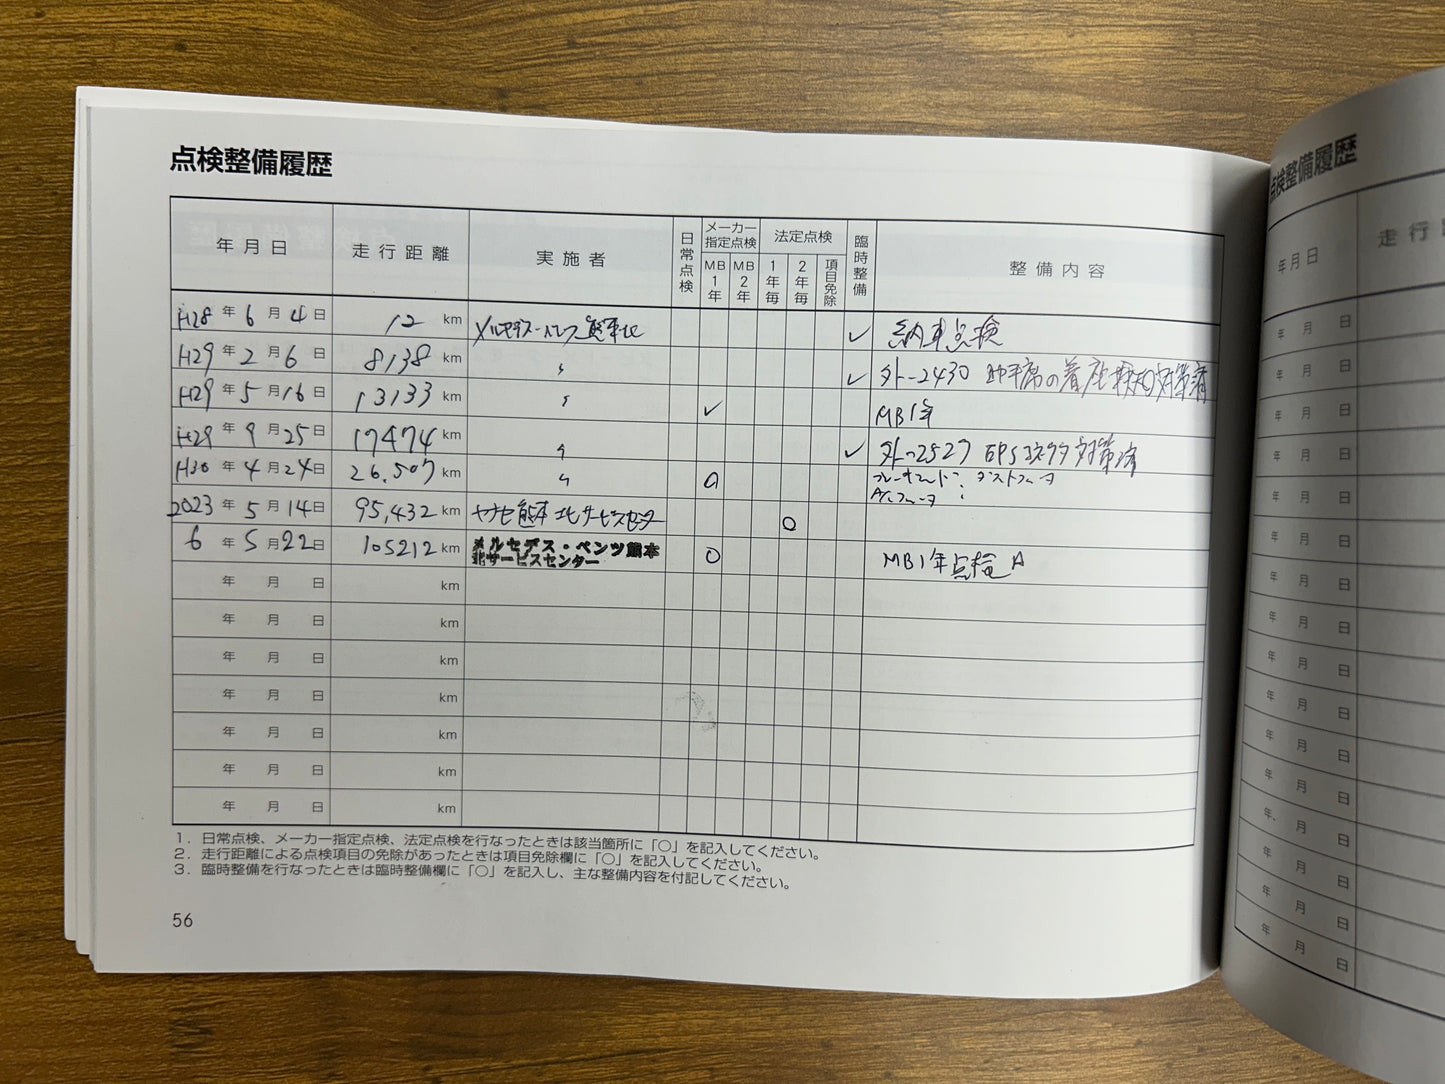 点検整備履歴
年月日 走行距離 実施者 日常点検 メーカー指定点検 MB1年 MB2年 法定点検 1年毎 2年毎 項目免除 臨時整備 整備内容
H28年6月4日 12km メルセデス-ベンツ熊本北 ✓ 納車点検
H29年2月6日 8138km 〃 ✓ 外-2430 助手席の着座検知対策済
H29年5月16日 13133km 〃 ✓ MB1年
H29年9月25日 17474km 〃 ✓ 外-2527 EPSコネクタ対策済
H30年4月24日 26.507km 〃 ○ ダストフィルタ
2023年5月14日 95,432km ヤナセ熊本北サービスセンター ○
6年5月22日 105212km メルセデス・ベンツ熊本北サービスセンター ○ MB1年点検A
年月日 km
年月日 km
年月日 km
年月日 km
年月日 km
年月日 km
年月日 km
1．日常点検、メーカー指定点検、法定点検を行なったときは該当箇所に「○」を記入してください。
2．走行距離による点検項目の免除があったときは項目免除欄に「○」を記入してください。
3．臨時整備を行なったときは臨時整備欄に「○」を記入し、主な整備内容を付記してください。
56
点検整備履歴
年月日 走行
年月日
年月日
年月日
年月日
年月日
年月日
年月日
年月日
年月日
年月日
年月日
年月日
年月日
年月日